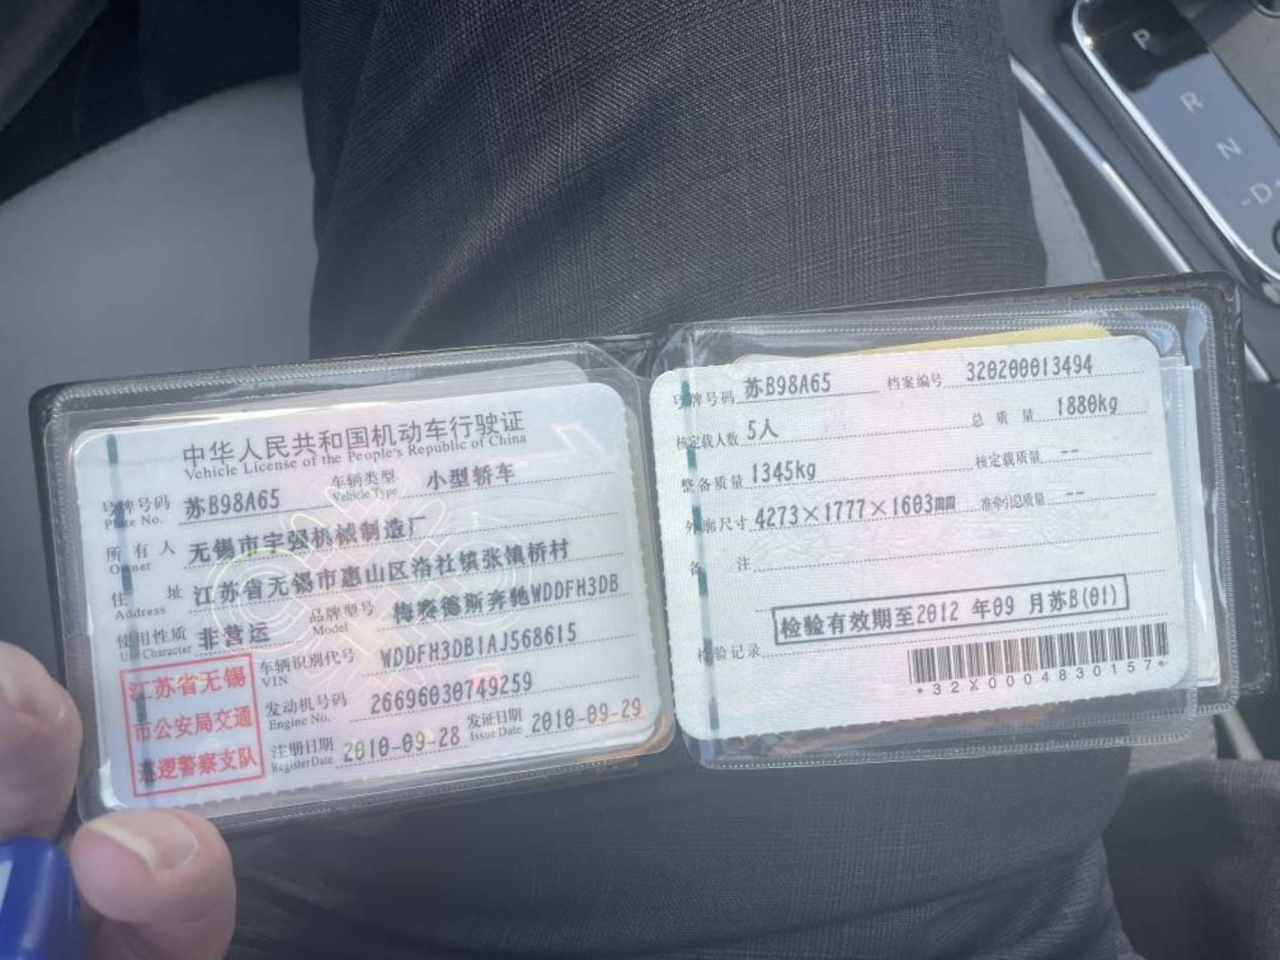 P
R
N
-D-
中华人民共和国机动车行驶证
Vehicle License of the People's Republic of China
号牌号码 苏B98A65 车辆类型 小型轿车
Plate No. Vehicle Type
所有人 无锡市宇强机械制造厂
Owner
住址 江苏省无锡市惠山区洛社镇张镇桥村
Address
使用性质 非营运 品牌型号 梅赛德斯奔驰WDDFH3DB
Use Character Model
车辆识别代号 WDDFH3DB1AJ568615
VIN
发动机号码 26696030749259
Engine No.
注册日期 2010-09-28 发证日期 2010-09-29
Register Date Issue Date
江苏省无锡
市公安局交通
巡逻警察支队
号牌号码 苏B98A65 档案编号 320200013494
核定载人数 5人 总质量 1880kg
整备质量 1345kg 核定载质量 --
外廓尺寸 4273×1777×1603mm 准牵引总质量 --
备注
检验有效期至2012 年09 月苏B(01)
检验记录
*32X0004830157*